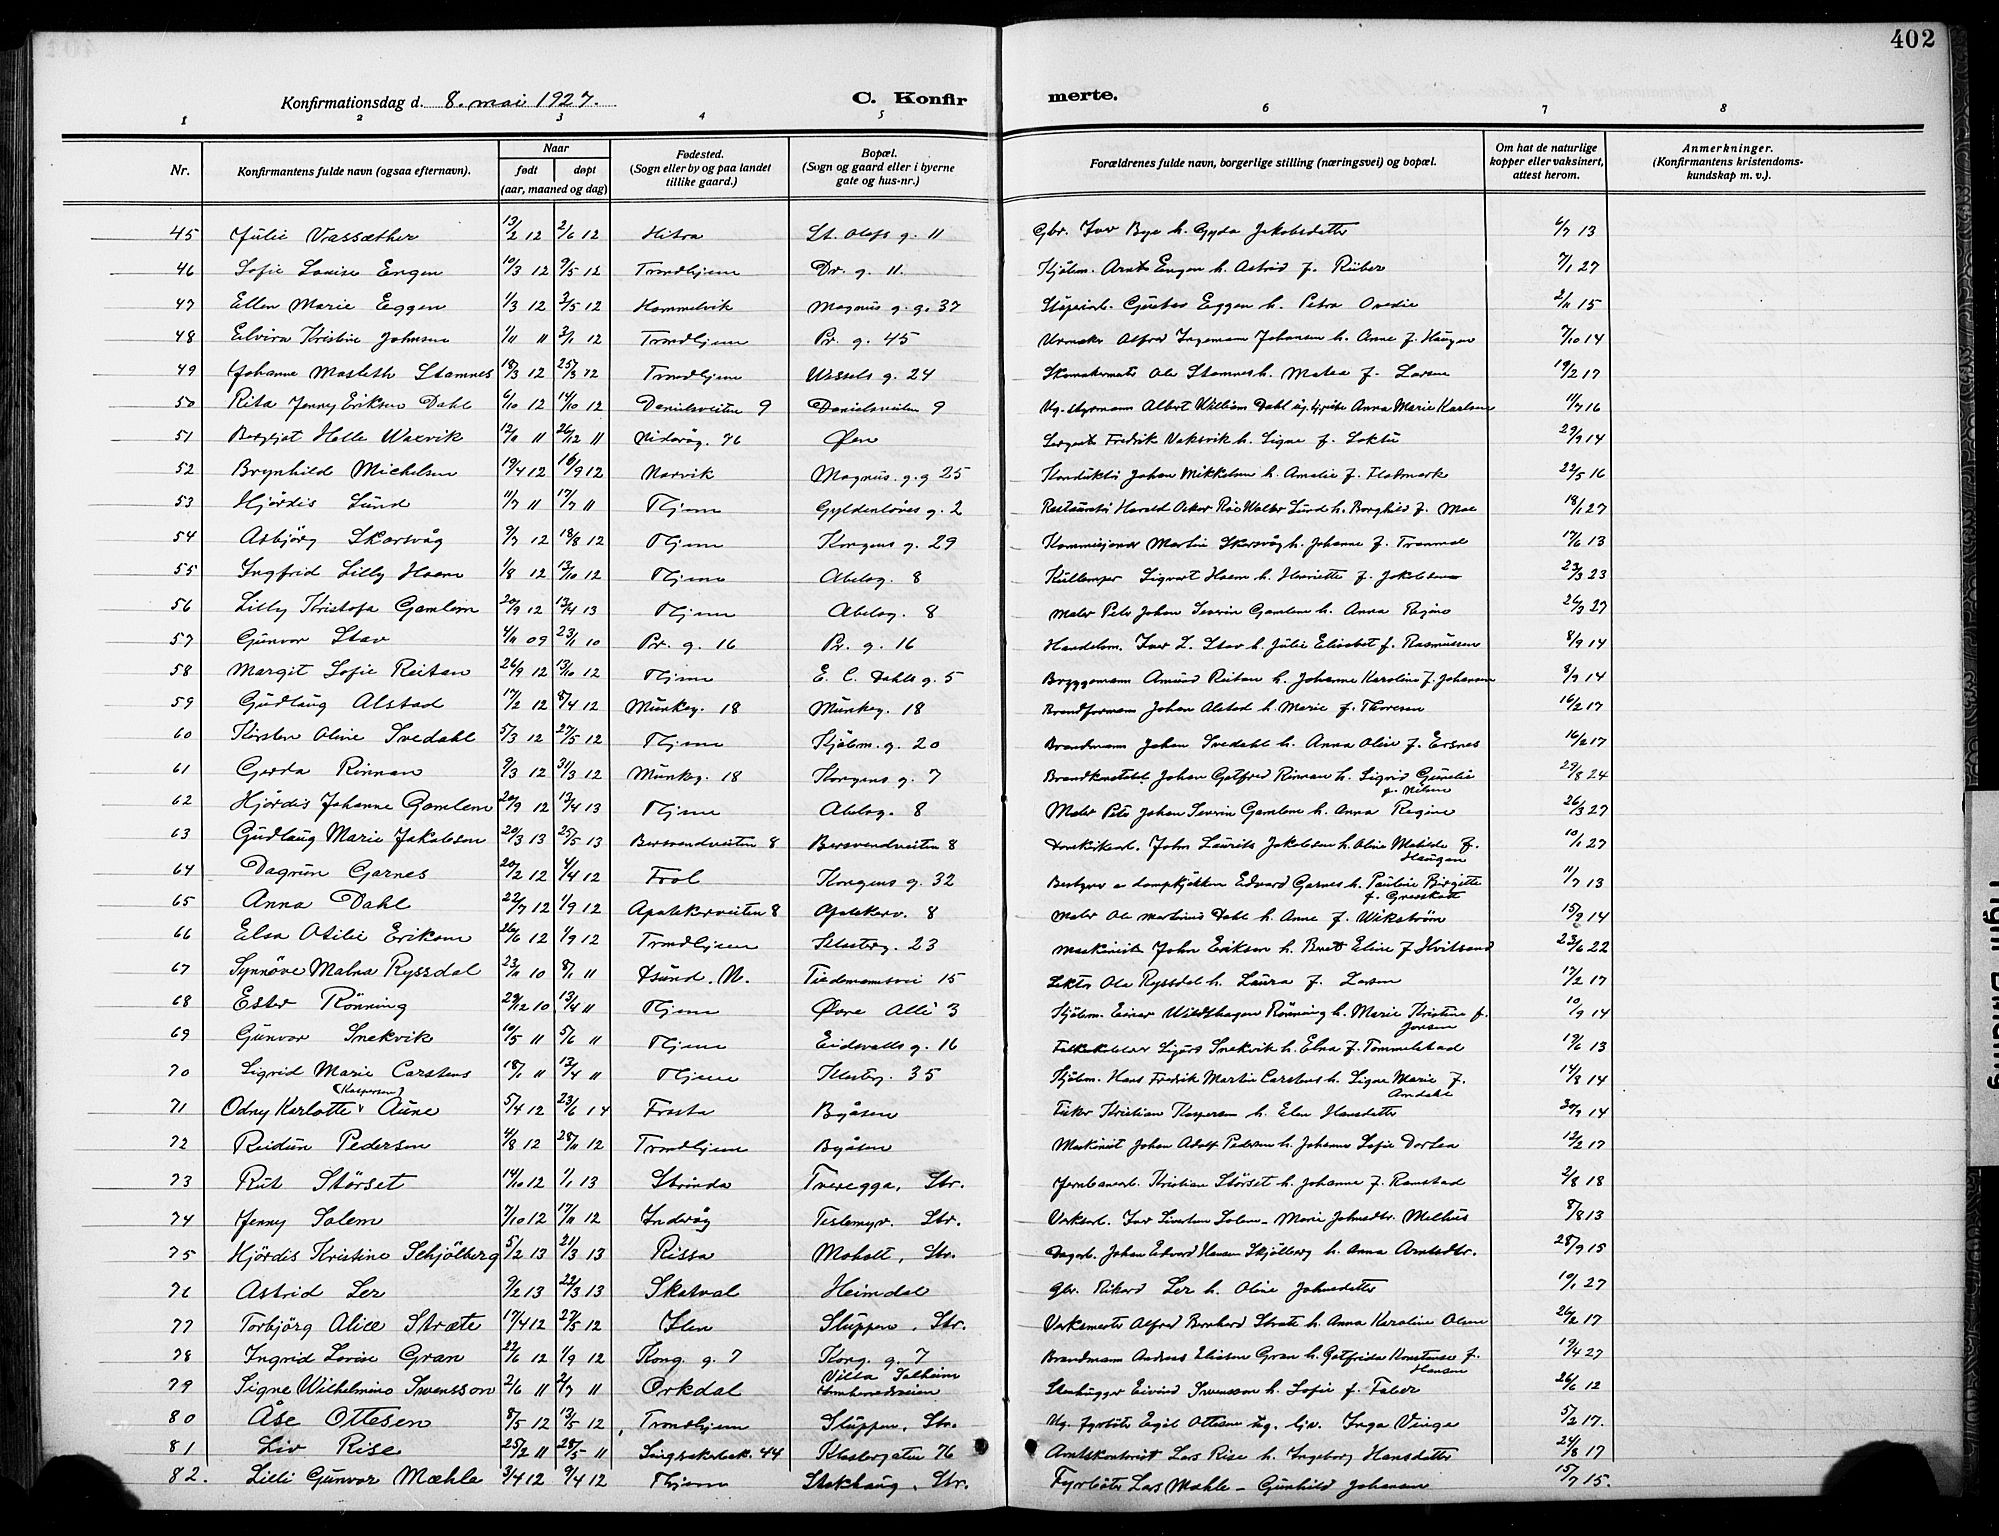 402
Konfirmationsdag d. 8. mai 1927.
C. Konfirmerte.
1 2 3 4 5 6 7 8
Nr. Konfirmantens fulde navn (ogsaa efternavn). Naar født døpt (aar, maaned og dag) Fødested. (Sogn eller by og paa landet tillike gaard.) Bopæl. (Sogn og gaard eller i byerne gate og hus-nr.) Forældrenes fulde navn, borgerlige stilling (næringsvei) og bopæl. Om hat de naturlige kopper eller vaksinert, attest herom. Anmerkninger. (Konfirmantens kristendomskundskap m. v.).
45 Julie Vassæther 13/2 12 2/6 12 Hitra St. Olafs g. 11 Gbr. Ivar Bye h. Gyda Jakobsdatter 6/7 13
46 Sofie Louise Engen 10/3 12 9/5 12 Trondhjem Dr. g. 11 Kjøbm. Arnt Engen h. Astrid f. Riiber 7/1 27
47 Ellen Marie Eggen 1/3 12 2/5 12 Hommelvik Magnus g. g. 37 Gustav Eggen h. Petra Ovedie 2/11 15
48 Elvira Kristine Johnsen 1/11 11 3/1 12 Trondhjem Pr. g. 45 Urmaker Alfred Ingemann Johansen h. Anne f. Haugen 7/10 14
49 Johanne Masleth Stamnes 18/3 12 25/3 12 Trondhjem Wessels g. 24 Skomakermester Ole Stamnes h. Matea f. Larsen 19/2 17
50 Rita Jenny Eriksen Dahl 6/10 12 14/10 12 Danielsveiten 9 Danielsveiten 9 Ug. styrmann Albert William Dahl ug. Anna Marie Karlsen 11/7 16
51 Bergljot Helle Waxvik 12/11 11 26/12 11 Nidarvåg. 76 Øen Sergeant Fredrik Vaksvik h. Signe f. 29/9 14
52 Brynhild Michelsen 19/4 12 16/9 12 Narvik Magnus. g. g 25 Konduktør Johan Mikkelsen h. Amalie f. Fladmark 22/5 16
53 Hjördis Lund 11/7 11 17/7 11 Thjem Gyldenløves g. 2 Restauratör Harald Oskar Walter Lund h. Borghild f. Moe 18/1 27
54 Asbjörg Skarsvåg 9/7 12 18/8 12 Thjem Kongens g. 29 Kommisjonær Martin Skarsvåg h. Johanne f. Tranmæl 17/6 13
55 Ingfrid Lilly Hoem 1/8 12 13/10 12 Thjem Abelsg. 8 Kullemper Sigvart Hoem h. Henriette f. Jakobsen 23/3 23
56 Lilly Kristofa Gamlem 20/9 12 13/4 13 Thjem Abelsg. 8 Maler Peter Johan Severin Gamlem h. Anna Regine 26/3 27
57 Gunvor Stav 4/11 09 23/1 10 Pr. g. 16 Pr. g. 16 Handelsm. Iver L. Stav h. Julie Elisabet f. Rasmussen 8/9 14
58 Margit Sofie Reitan 26/9 12 13/10 12 Thjem E. C. Dahls g. 5 Bryggemann Amund Reitan h. Johanne Karoline f. Johansen 8/9 14
59 Gudlaug Alstad 17/2 12 8/4 12 Munkeg. 18 Munkeg. 18 Brandformann Johan Alstad h. Marie f. Thoresen 16/2 17
60 Kirsten Oline Svedahl 5/3 12 27/5 12 Thjem Kjøbm. g. 20 Brandmann Johan Svedahl h. Anna Oline f. Ersnes 16/2 17
61 Gerda Rinnan 9/3 12 31/3 12 Munkeg. 18 Kongens g. 7 Brandkonstabel Johan Gotfred Rinnan h. Sigrid Gunelie f. Nilsen 29/8 24
62 Hjördis Johanne Gamlem 20/9 12 13/4 13 Thjem Abelsg. 8 Maler Peter Johan Severin Gamlem h. Anna Regine 26/3 27
63 Gudlaug Marie Jakobson 20/3 13 25/5 13 Bersvendveiten 8 Bersvendveiten 8 Domkirkearb. John Laurits Jakobsen h. Oline Matilde f. Haugan 10/1 27
64 Dagrun Garnes 20/2 12 4/4 12 Frol Kongens g. 32 Bestyrer a dampkjøkken Edvard Garnes h. Pauline Birgitte f. 11/7 13
65 Anna Dahl 22/7 12 1/9 12 Apotekerveiten 8 Apotekerv. 8 Maler Ole Martinus Dahl h. Anne f. Wikström 15/9 14
66 Elsa Otilie Eriksen 26/6 12 1/9 12 Trondhjem 23 Maskinist John Eriksen h. Beret Eline f. Hvitsand 23/6 22
67 Synnöve Malna Ryssdal 23/11 10 8/1 11 Xsund. N. Tiedemannsvei 15 Lektor Ola Ryssdal h. Laura f. Larsen 17/2 17
68 Ester Rönning 29/12 10 13/4 11 Thjem Øvre Allé 3 Kjøbm. Einar Wildthagen Rönning h. Marie Kristine f. Jonsen 10/9 14
69 Gunvor Snekvik 10/5 11 5/6 11 Thjem Eidsvolls g. 16 Sigurd Snekvik h. Elna f. Tommelstad 19/6 13
70 Sigrid Marie Carstens 18/1 11 13/4 11 Thjem 35 Kjøbm. Hans Fredrik Martin Carstens h. Signe Marie f. Amdahl 14/8 14
71 Odny Karlotte (Kaspersen) Aune 5/4 12 23/6 14 Frosta Byåsen Fisker Kristian Kaspersen h. Elen Hansdatter 30/9 14
72 Reidun Pedersen 4/8 12 28/11 12 Trondhjem Byåsen Maskinist Johan Adolf Pedersen h. Johanne Sofie Dortea 12/2 17
73 Rut Störset 14/10 12 1/1 13 Strinda Tveregga, Str. Jernbanearb. Kristian Störset h. Johanne f. Ramstad 2/8 18
74 Jenny Solem 7/10 12 17/11 12 Inderöy Teslemyr. Str. Verksarb. Ivar Solem – Marie Johnsdtr. Melhus 8/8 13
75 Hjördis Kristine Schjölberg 5/2 13 21/3 13 Rissa Moholt, Str. Dagarb. Johan Edvard Hansen Skjölberg h. Anna Arntsdtr. 28/9 15
76 Astrid Ler 9/2 13 22/3 13 Skatval Heimdal Gbr. Rikard Ler h. Oline Johnsdatter 10/1 27
77 Torbjörg Alice Stræte 17/4 12 27/5 12 Ilen Sluppen, Str. Verksmester Alfred Bernhard Stræte h. Anna Karoline Olsen 26/2 17
78 Ingrid Lovise Gran 22/6 12 1/9 12 Kong. g. 7 Kong. g. 7 Brandmann Andreas Eliasen Gran h. Gotfrida Konstanse f. Hansen 19/4 27
79 Signe Wilhelmine Svensson 2/6 11 2/7 11 Orkdal Villa Solheim Stenhugger Eivind Svensson h. Sofie f. Faber 26/6 12
80 Åse Ottesen 8/5 12 13/5 12 Trondhjem Sluppen, Str. Ug. fyrböter Egil Ottesen ug. tjp. Inga Vinge 5/2 17.
81 Liv Rise 25/2 11 28/5 11 Singsakerbak. 44 Klostergaten 76 Amtskontorist Lars Rise h. Ingeborg Hansdatter 24/8 17
82. Lilli Gunvor Mæhle 9/4 12 9/4 12 Thjem Stokhaug, Str. Fyrböter Lars Mæhle – Gunhild Johansen 15/7 15.